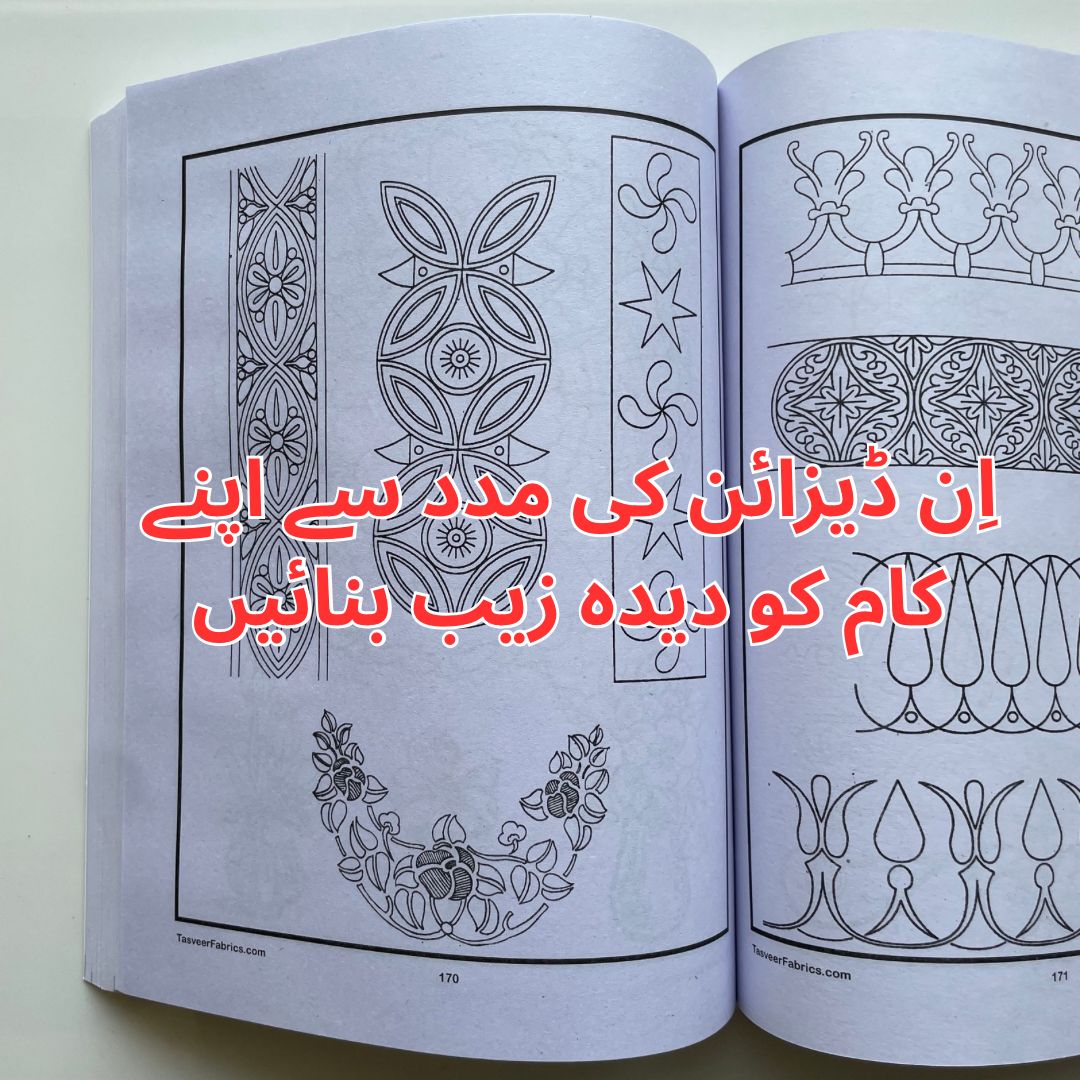 اِن ڈیزائن کی مدد سے اپنے
کام کو دیدہ زیب بنائیں
TasveerFabrics.com
170
TasveerFabrics.com
171